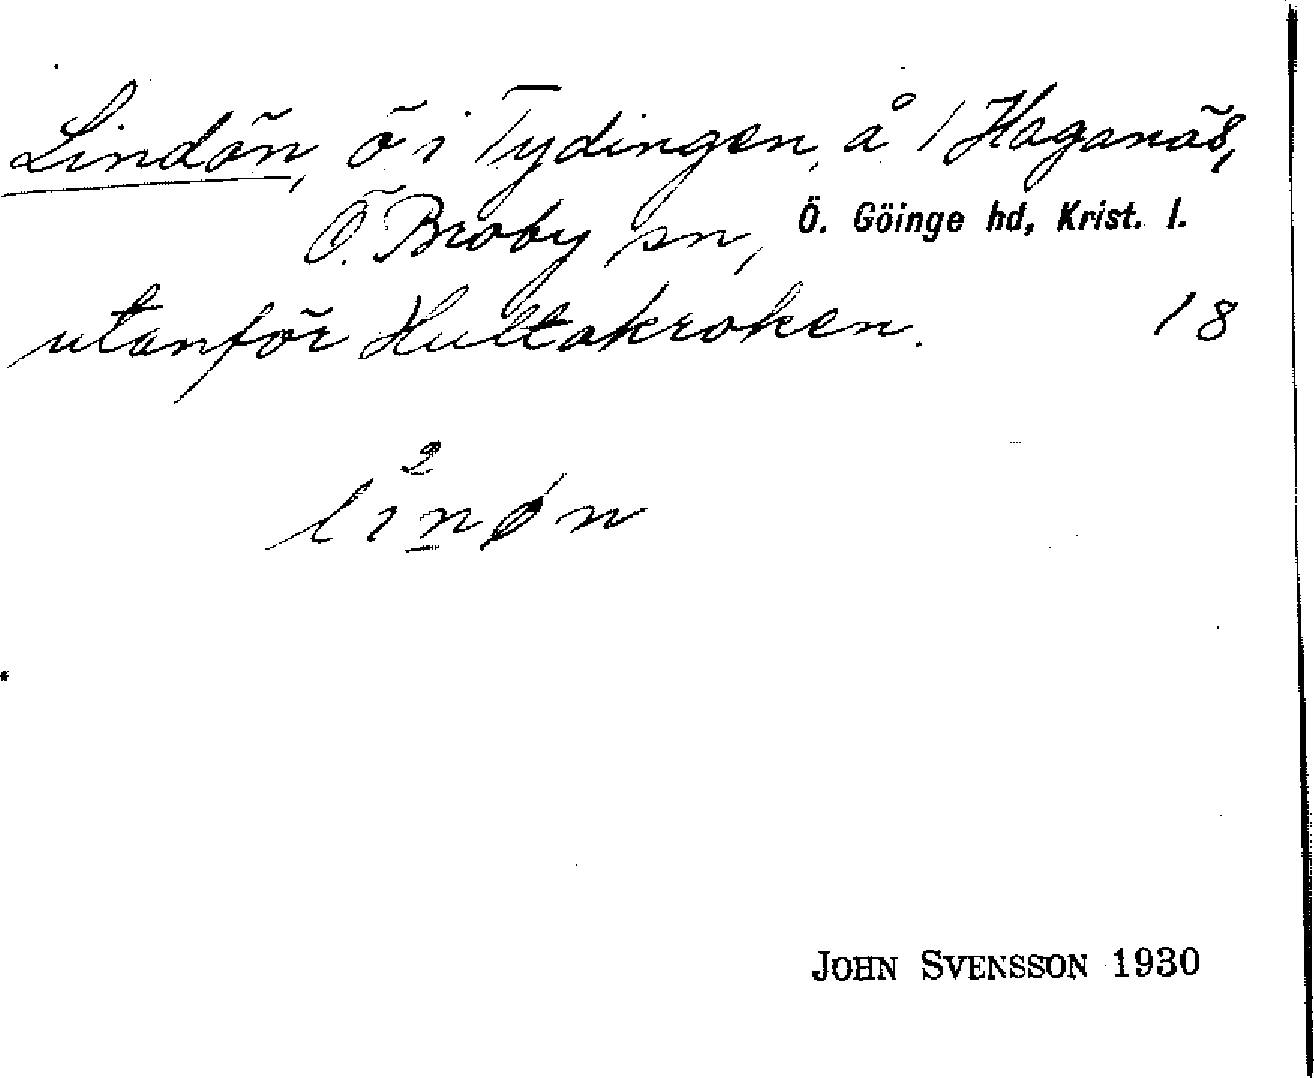 Lindön, ö i Tydingen, å 1 Haganäs,
Ö. Broby sn, Ö. Göinge hd, Krist. l.
utanför Hultakroken. 18
li2nøn
JOHN SVENSSON 1930